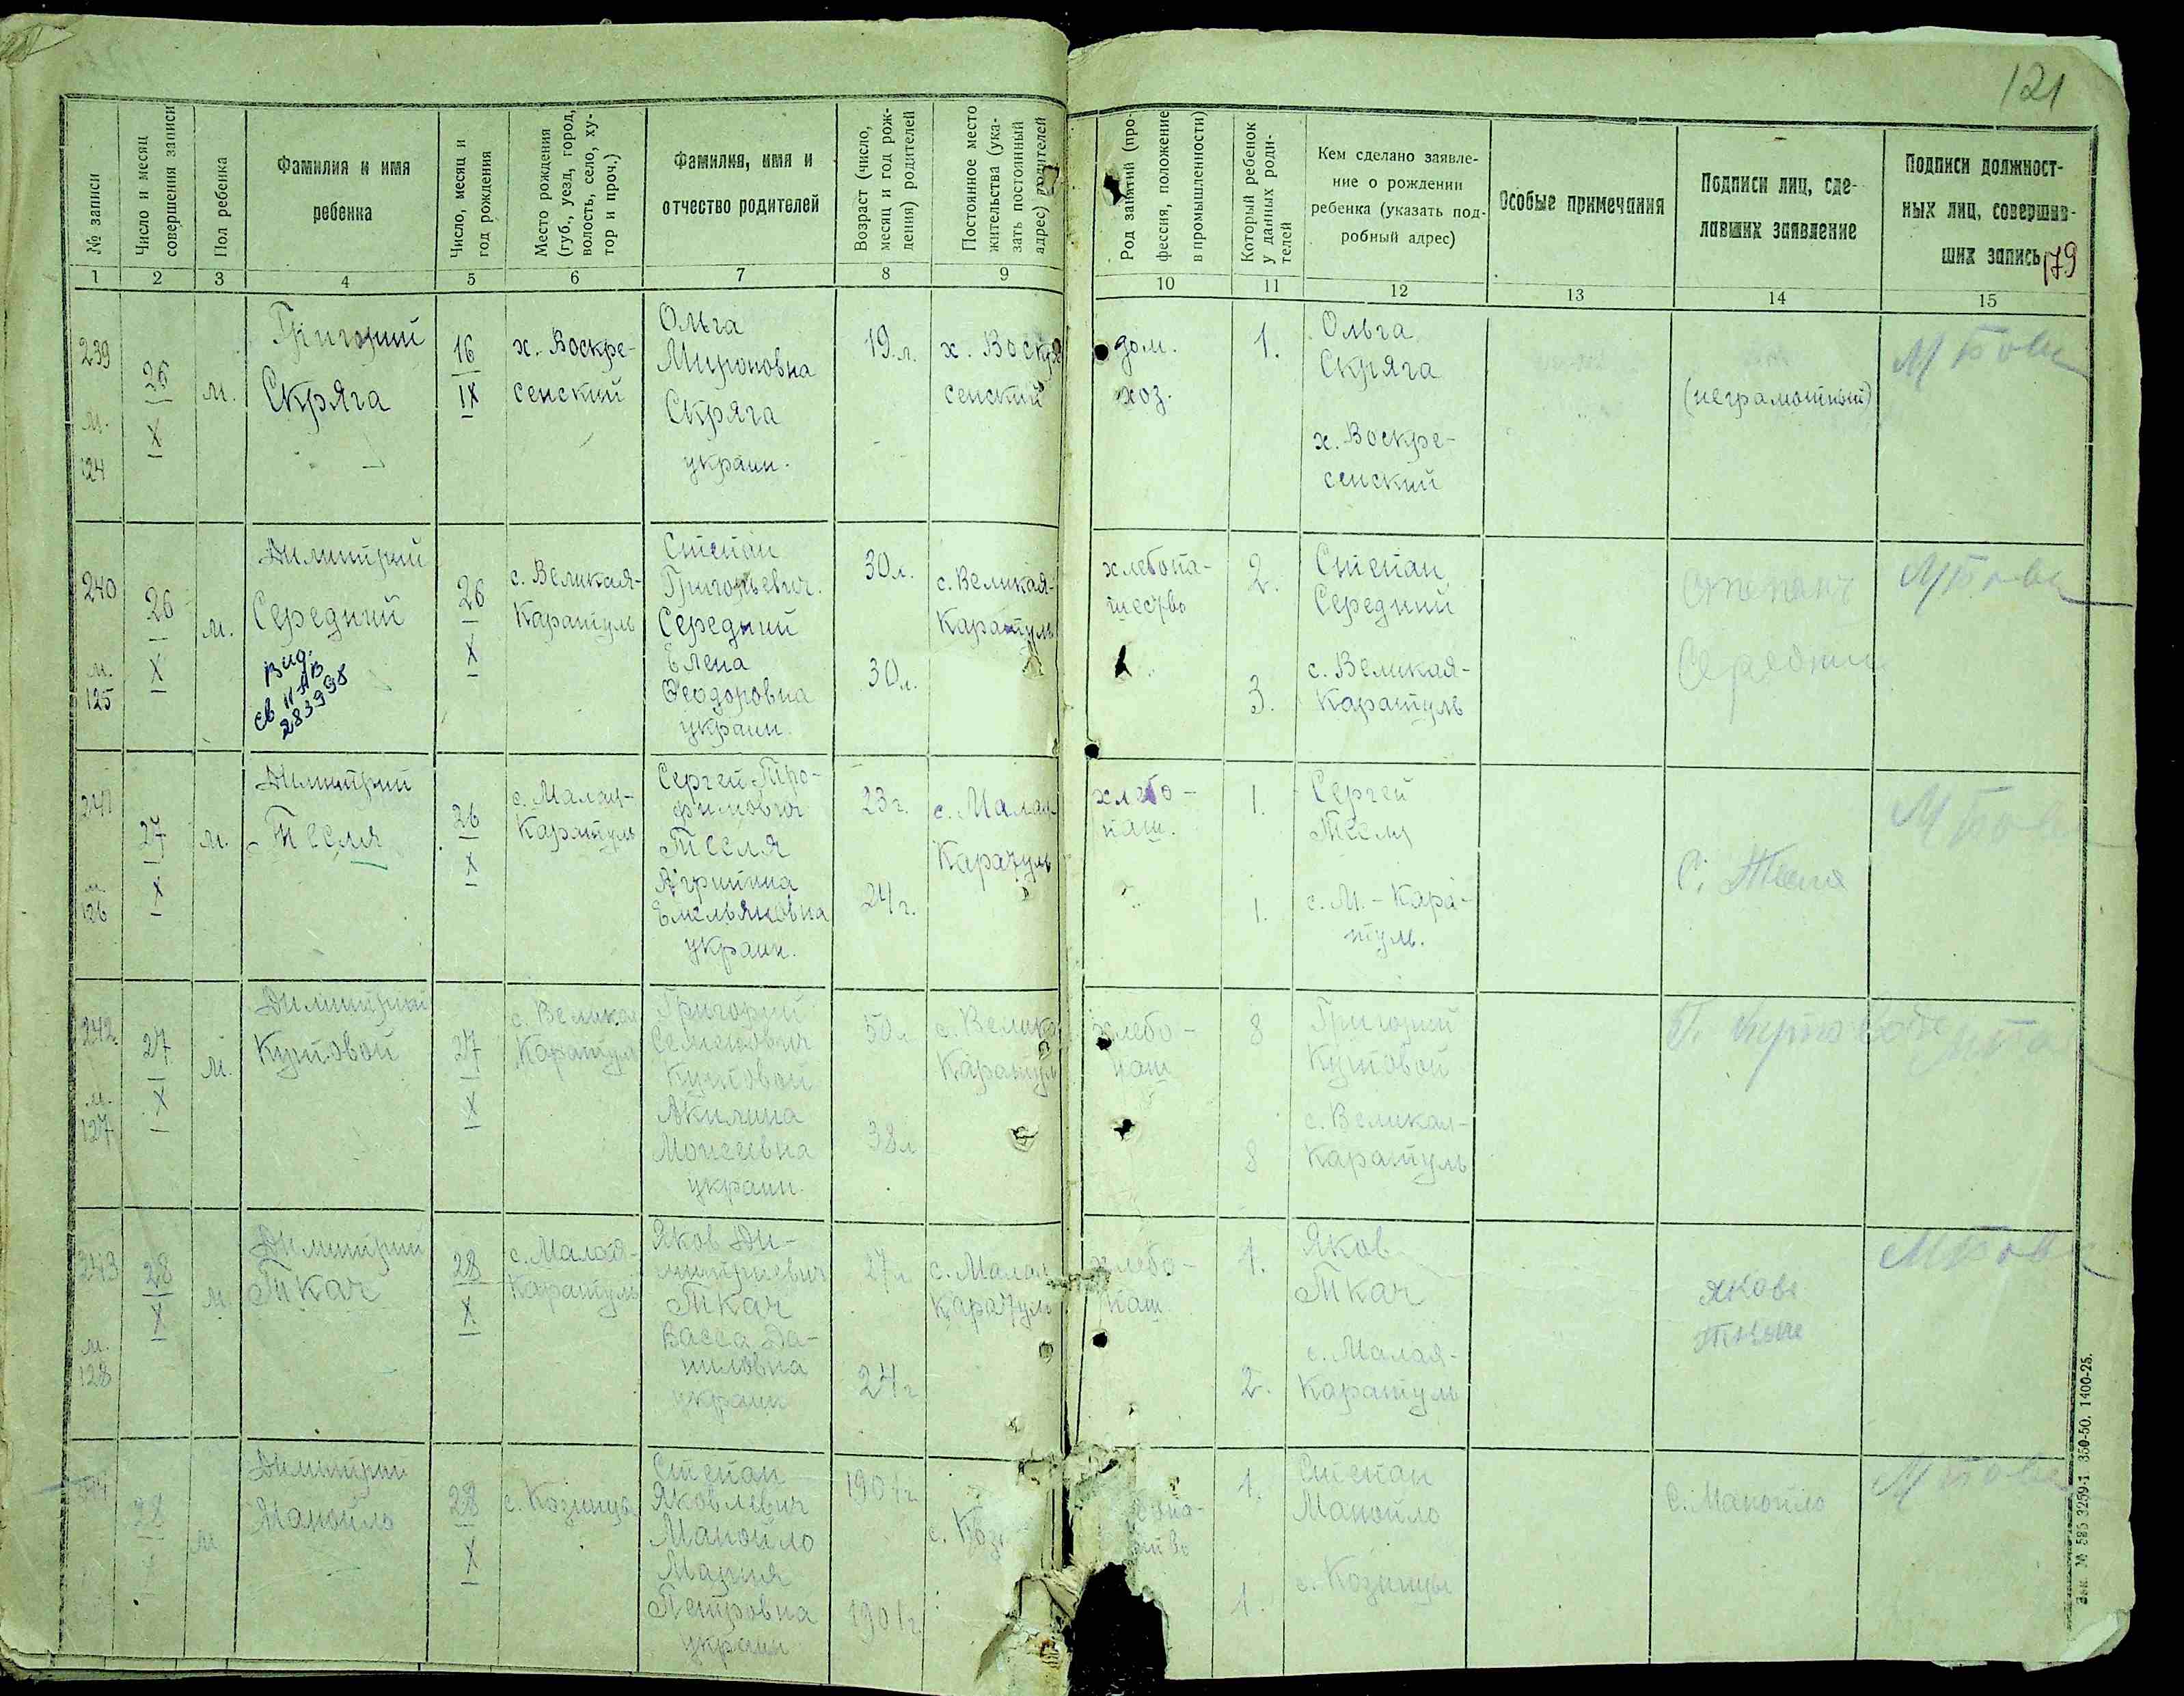 121
№ записи
Число и месяц
совершения записи
Пол ребенка
Фамилия и имя
ребенка
Число, месяц и
год рождения
Место рождения
(губ., уезд, город,
волость, село, ху-
тор и проч.)
Фамилия, имя и
отчество родителей
Возраст (число,
месяц и год рож-
дения) родителей
Постоянное место
жительства (ука-
зать постоянный
адрес) родителей
Род занятий (про-
фессия, положение
в промышленности)
Который ребенок
у данных роди-
телей
Кем сделано заявле-
ние о рождении
ребенка (указать под-
робный адрес)
Особые примечания
Подписи лиц, сде-
лавших заявление
Подписи должност-
ных лиц, совершив-
ших запись
179
1 2 3 4 5 6 7 8 9 10 11 12 13 14 15
239
м.
124
26
X
м.
Григорий
Скряга
16
IX
х. Воскре-
сенский
Ольга
Мироновна
Скряга
украин.
19 л.
х. Воскре
сенский
дом.
хоз.
1.
Ольга
Скряга
х. Воскре-
сенский
(неграмотный)
240
м.
125
26
X
м.
Димитрий
Середний
Вид.
св II АВ
283998
26
X
с. Великая-
Каратуль
Степан
Григорьевич
Середний
Елена
Феодоровна
украин.
30 л.
30 л.
с. Великая-
Каратуль
хлебопа-
шество
2.
3.
Степан
Середний
с. Великая-
Каратуль
Степан
Середний
241
м.
126
27
X
м.
Димитрий
Тесля
26
X
с. Малая-
Каратуль
Сергей Тро-
фимович
Тесля
Агрипина
Емельяновна
украин.
23 г.
24 г.
с. Малая
Каратуль
хлебо-
паш.
1.
1.
Сергей
Тесля
с. М.-Кара-
туль.
С. Тесля
242
м.
127
27
X
м.
Димитрий
Кутовой
27
X
с. Великая
Каратуль
Григорий
Семенович
Кутовой
Акилина
Моисеевна
украин.
50 л
38 л
с. Велика
Каратуль
хлебо-
паш
8
8
Григорий
Кутовой
с. Великая-
Каратуль
243
м.
128
28
X
м.
Димитрий
Ткач
28
X
с. Малая-
Каратуль
Яков Ди-
митриевич
Ткач
Васса Да-
ниловна
украин
27 л
24 г
с. Малая
Каратуль
хлебо-
паш.
1.
2.
Яков
Ткач
с. Малая-
Каратуль
Якове
244
28
м
Димитрий
Манойло
28
X
с. Козинцы
Степан
Яковлевич
Манойло
Мария
Петровна
украин
1901 г.
1901 г.
с. Кози
1.
1.
Степан
Манойло
с. Козинцы
С. Манойло
Зак. № 585 3259-1 350-50. 1400-25.